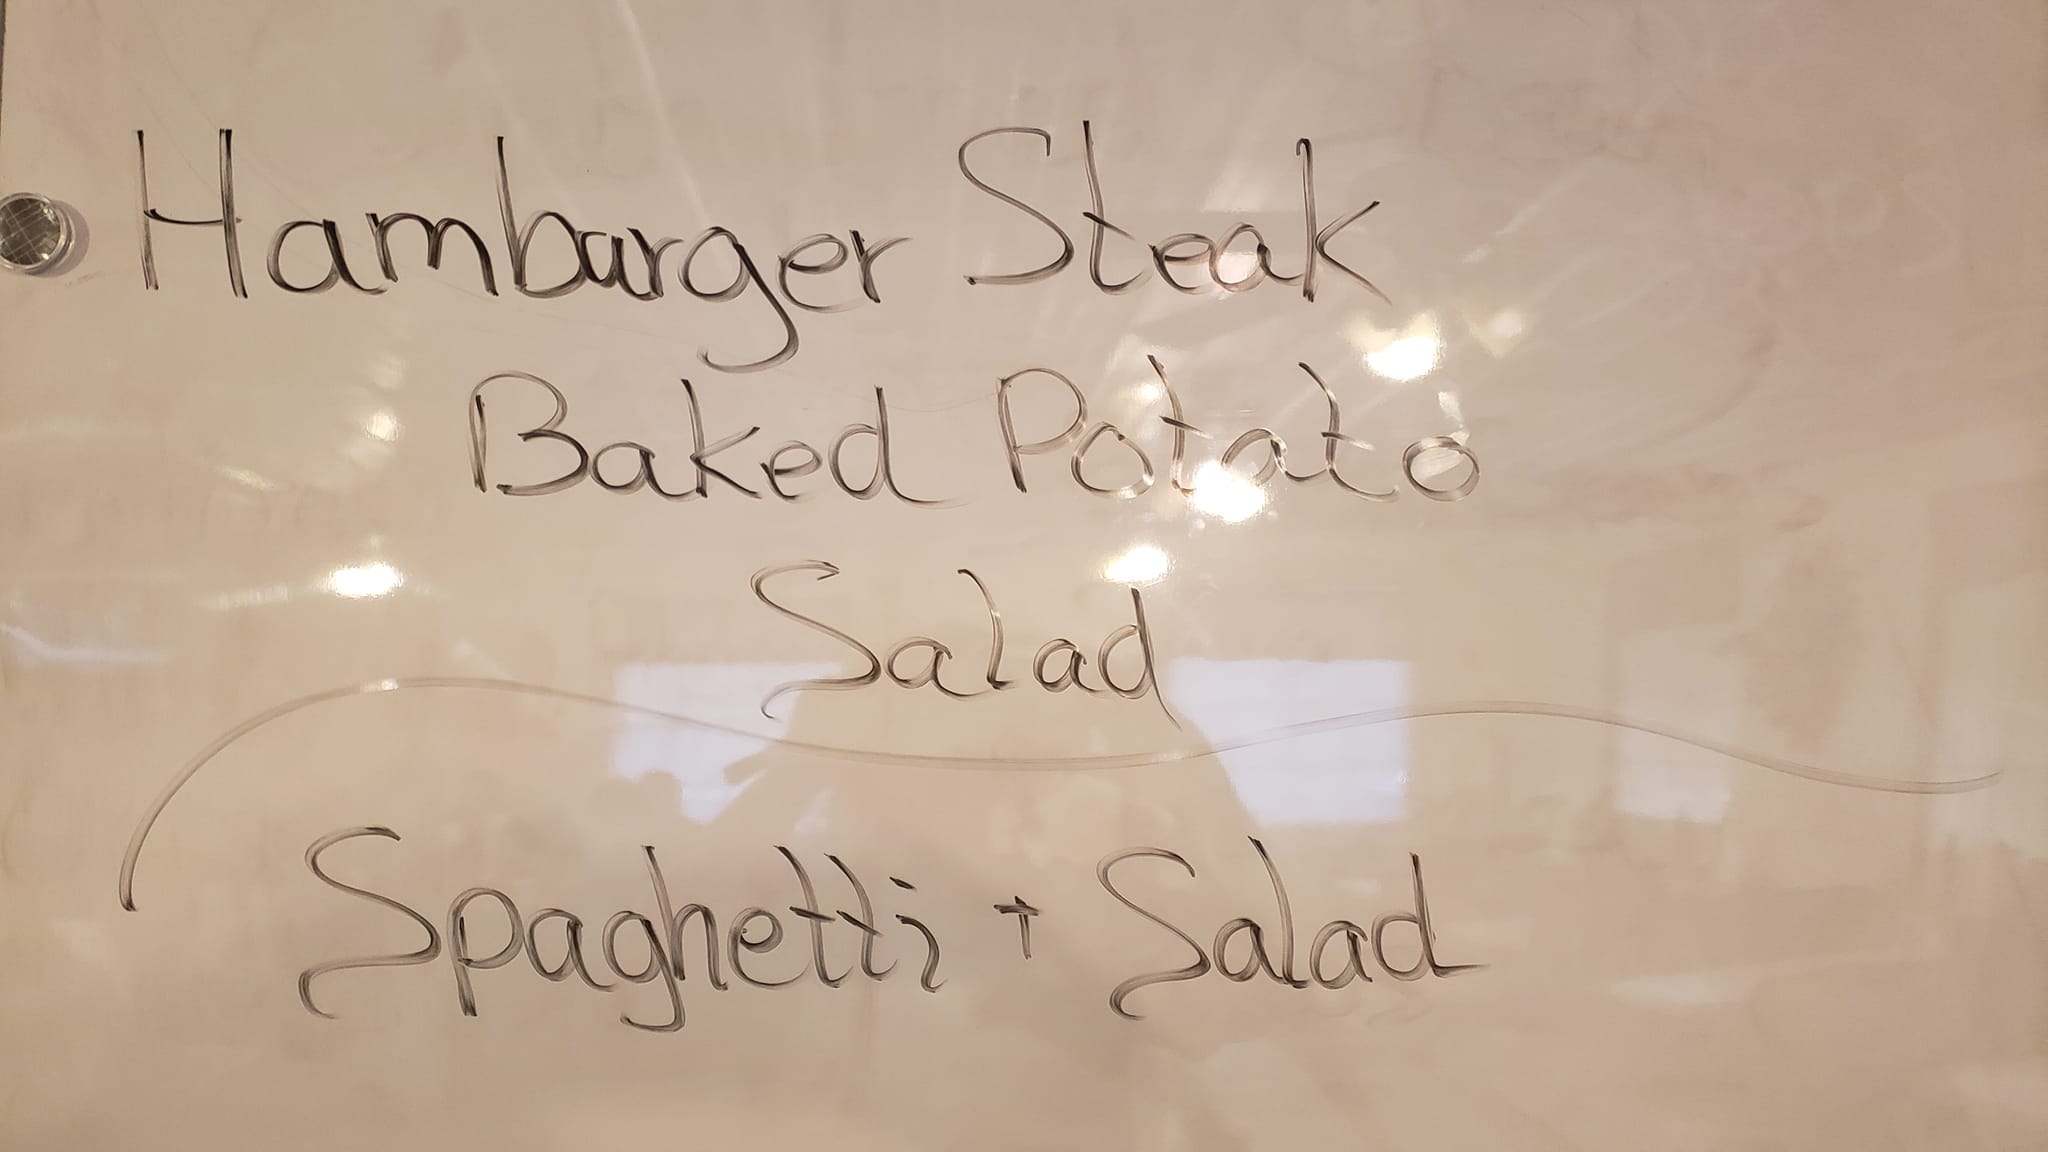 Hamburger Steak
Baked Potato
Salad
Spaghetti + Salad